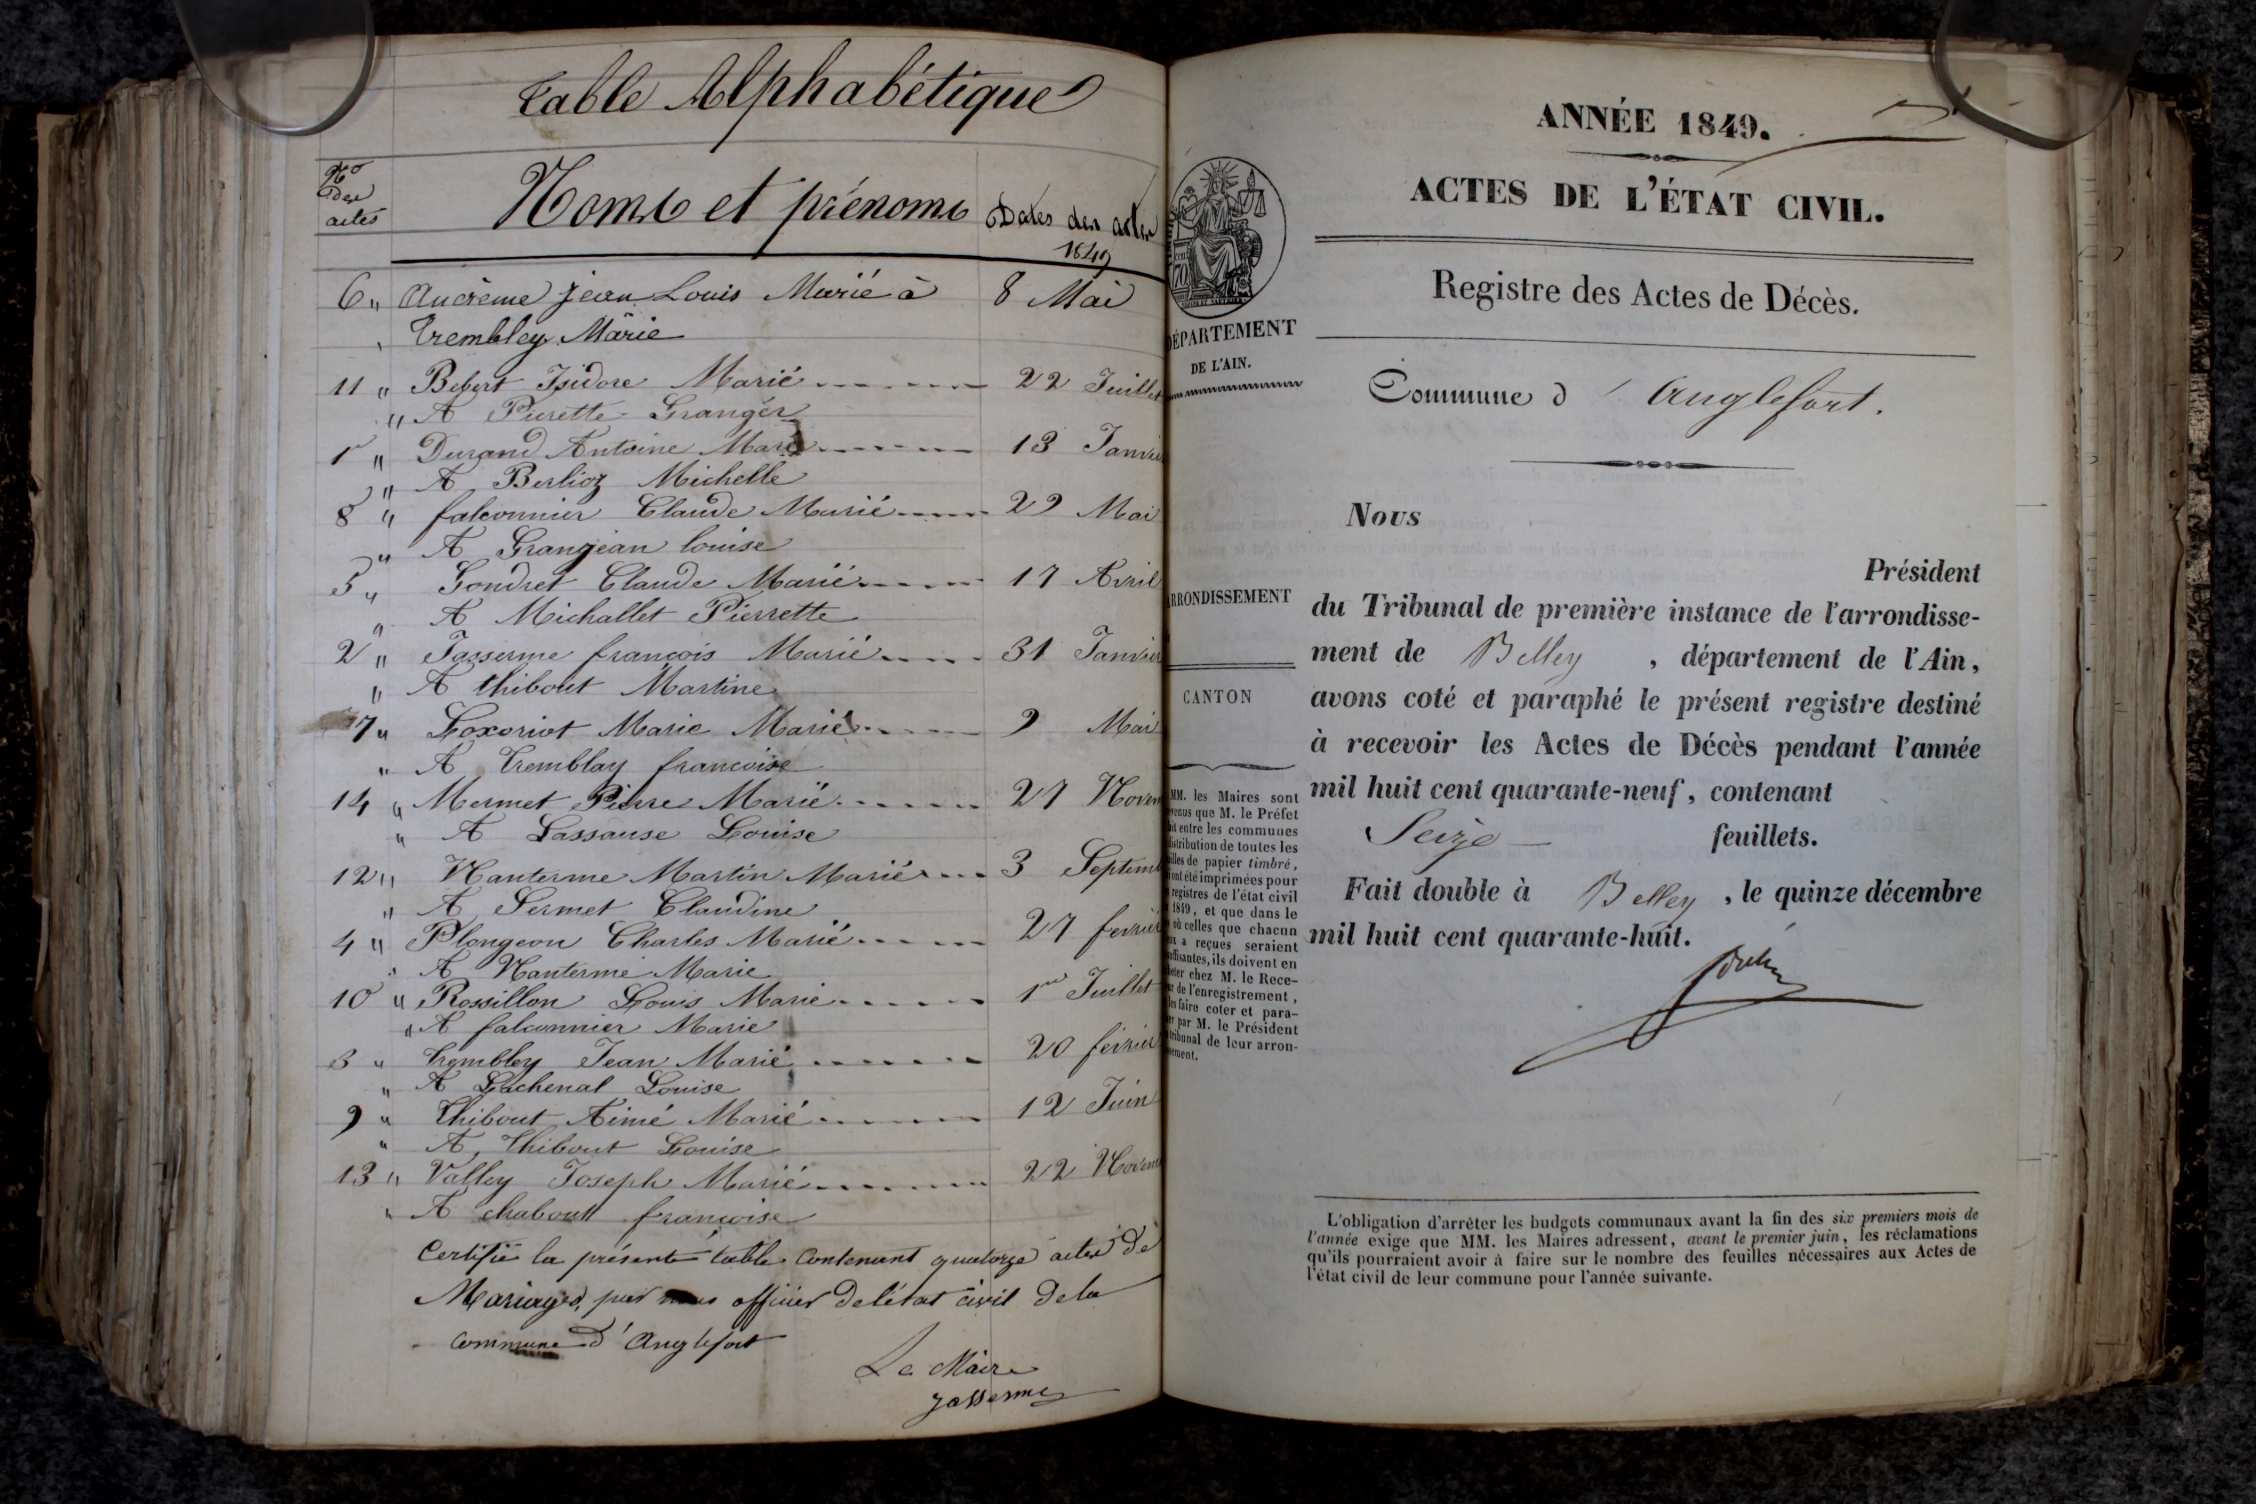 Table Alphabétique
No
des
actes
Noms et prénoms
Dates des actes
1849
6 " Ancrenne jean Louis Marié à 8 Mai
Trembley Marie
11 " Bebert Isidore Marié 22 Juillet
" A Pierette Granger
1er " Durand Antoine Marié 13 Janvie
" A Berlioz Michelle
8 " falconnier Claude Marié 29 Mai
" A Granjean louise
5 " Gondret Claude Marié 17 Avril
" A Michallet Pierrette
2 " Jasserme françois Marié 31 Janvier
" A thibout Martine
7 " Loxoriot Marie Marié 9 Mai
" A Tremblay francoise
14 " Mermet Pierre Marié 27 Novem
" A Lassause Louise
12 " Nanterme Martin Marié 3 Septemb
" A Sermet Claudine
4 " Plongeon Charles Marié 27 fevrier
" A Nanterme Marie
10 " Rossillon Louis Marié 1er Juillet
" A falconnier Marie
3 " Trembley Jean Marié 20 février
" A Lachenal Louise
9 " Thibout Aimé Marié 12 Juin
" A Thibout Louise
13 " Valley Joseph Marié 22 Novem
" A chaboud françoise
Certifié la présente table Contenant quatorze actes de
Mariages, par nous officier de l'état civil de la
commune d'Anglefort
Le Maire
Jasserme
ANNÉE 1849.
ACTES DE L'ÉTAT CIVIL.
Registre des Actes de Décès.
DÉPARTEMENT
DE L'AIN.
Commune d'Anglefort.
Nous
Président
ARRONDISSEMENT
du Tribunal de première instance de l'arrondisse-
ment de Belley, département de l'Ain,
CANTON
avons coté et paraphé le présent registre destiné
à recevoir les Actes de Décès pendant l'année
mil huit cent quarante-neuf, contenant
Seize feuillets.
Fait double à Belley, le quinze décembre
mil huit cent quarante-huit.
MM. les Maires sont
venus que M. le Préfet
it entre les communes
istribution de toutes les
illes de papier timbré,
ont été imprimées pour
registres de l'état civil
1849, et que dans le
où celles que chacun
ux a reçues seraient
uffisantes, ils doivent en
eter chez M. le Rece-
r de l'enregistrement,
les faire coter et para-
er par M. le Président
tribunal de leur arron-
sement.
L'obligation d'arrêter les budgets communaux avant la fin des six premiers mois de
l'année exige que MM. les Maires adressent, avant le premier juin, les réclamations
qu'ils pourraient avoir à faire sur le nombre des feuilles nécessaires aux Actes de
l'état civil de leur commune pour l'année suivante.